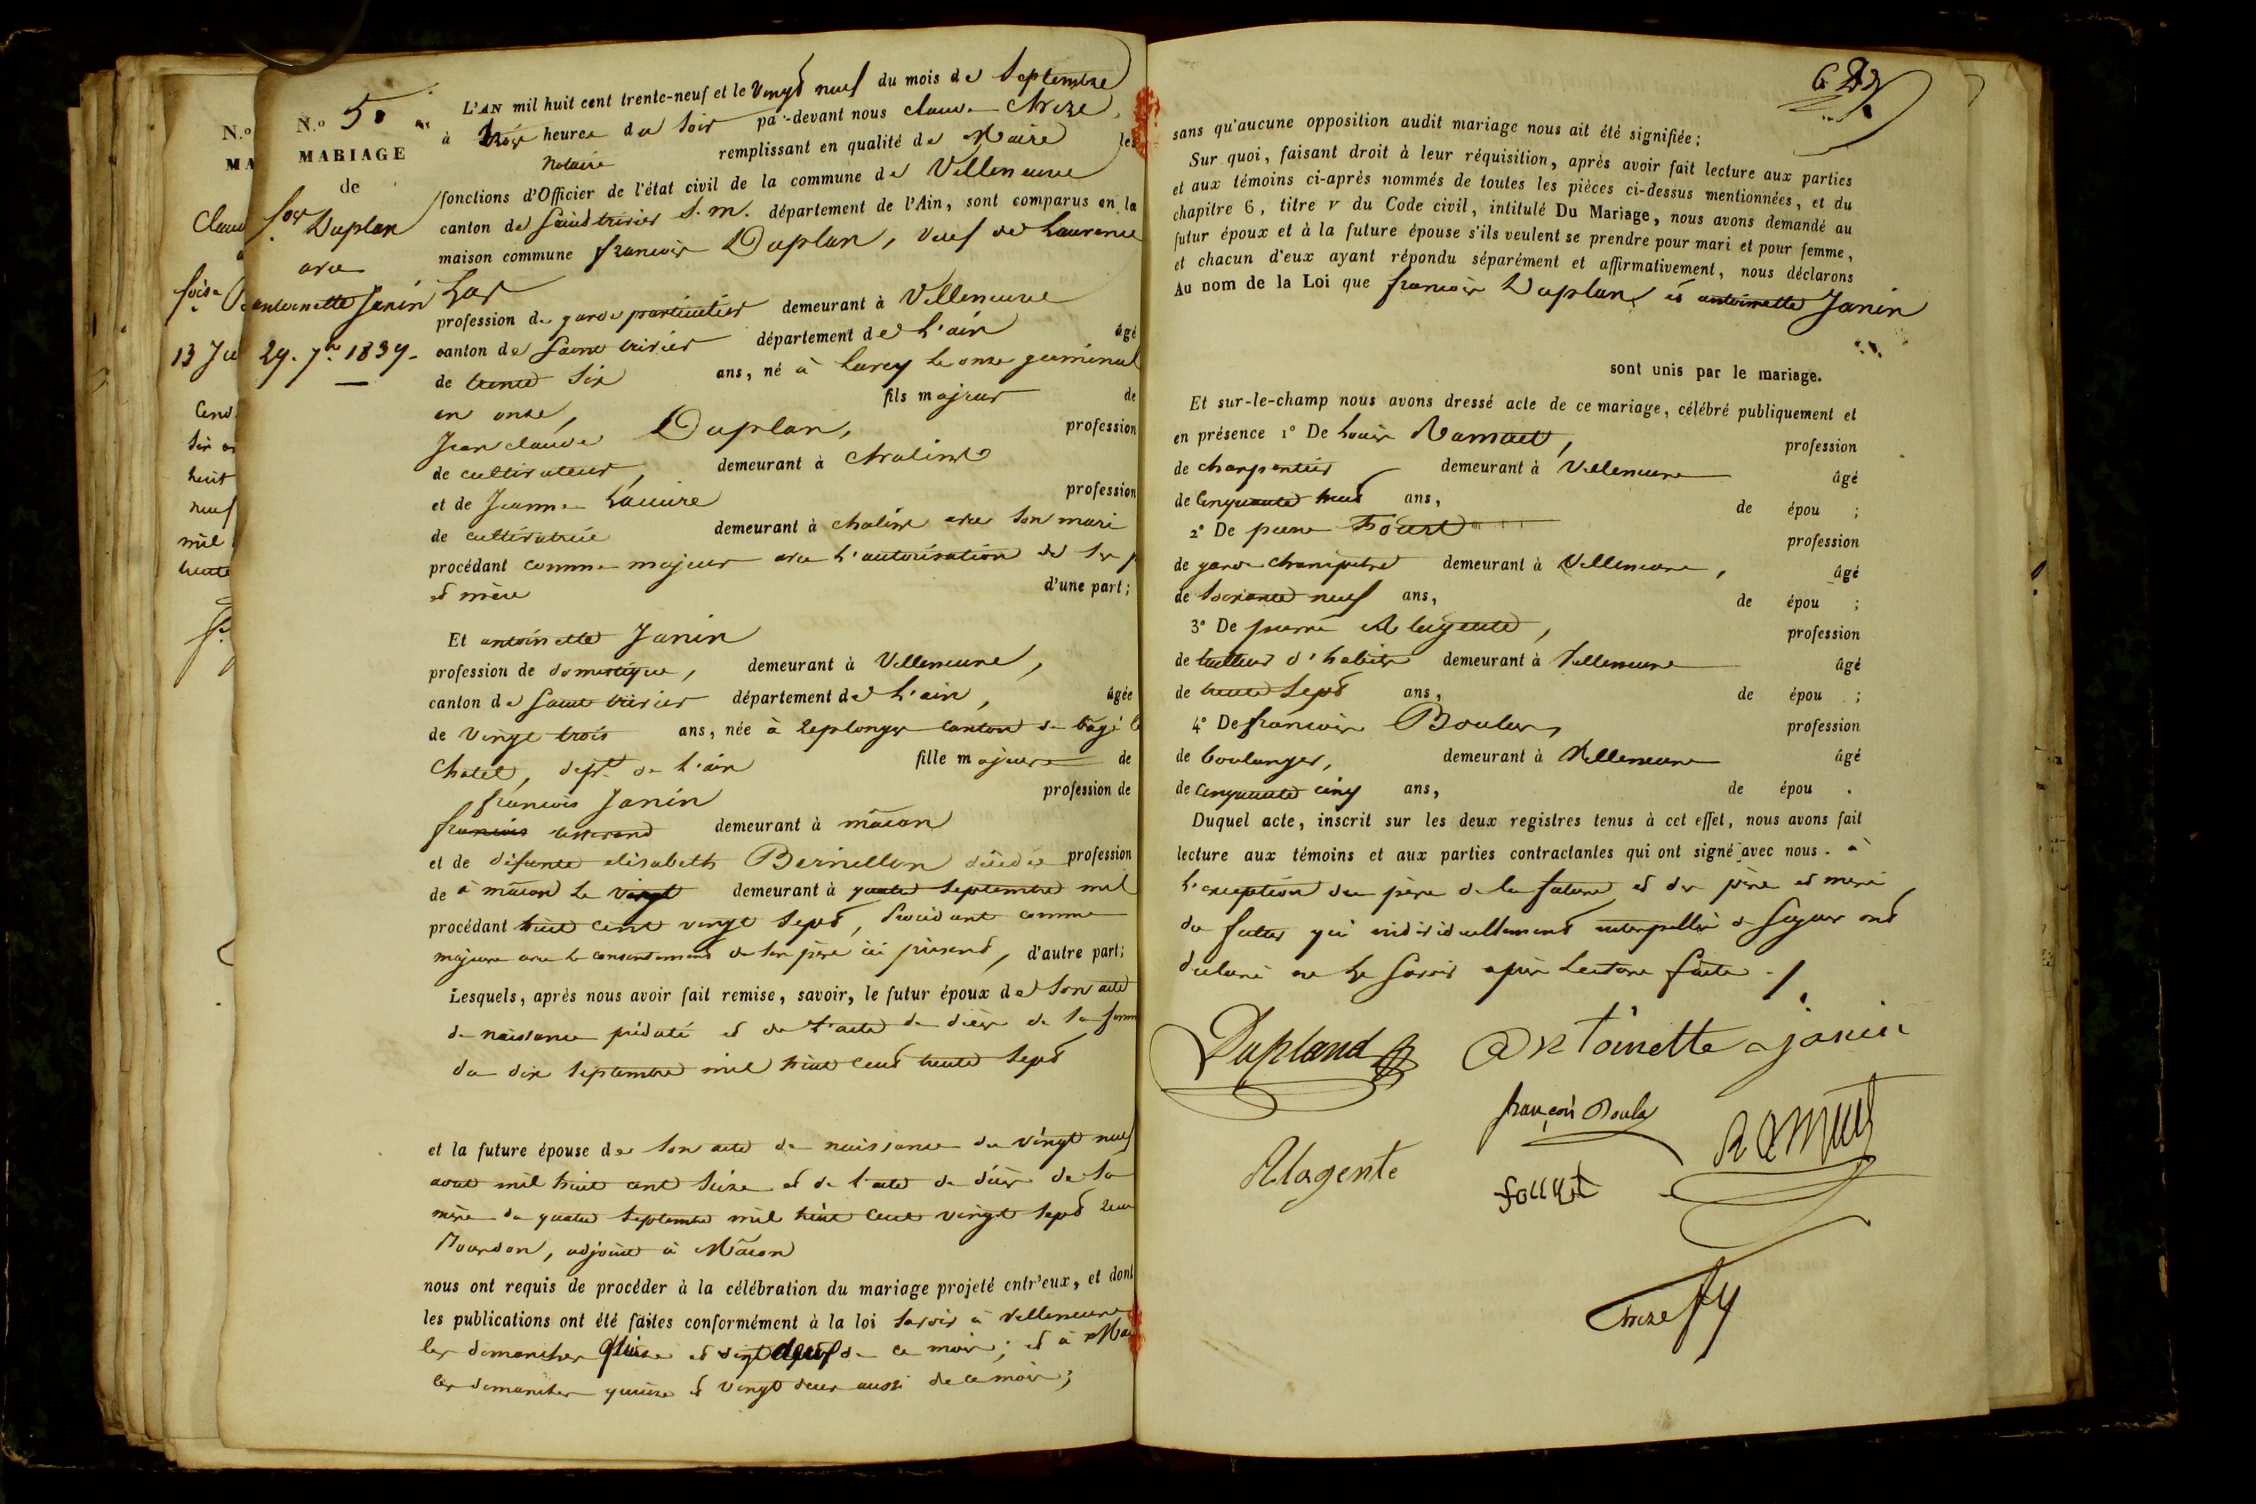 N.º 5
MARIAGE
de
fois Duplan
avec
antoinette Janin
29. 7bre 1839.
L'AN mil huit cent trente-neuf et le Vingt neuf du mois de Septembre
à trois heures du soir par-devant nous claude
Notaire remplissant en qualité de Maire les
fonctions d'Officier de l'état civil de la commune de Villeneuve
canton de Saint trivier S. m. département de l'Ain, sont comparus en la
maison commune françois Duplan, veuf de Laurence
profession de garde particulier demeurant à Villeneuve
canton de Saint trivier département de L'ain âgé
de trente six ans, né à Lurcy le onze germinal
an onze, fils majeur de
Jean claude Duplan, profession
de cultivateur, demeurant à
et de Jeanne profession
de cultivatrice demeurant à avec son mari
procédant comme majeur avec l'autorisation de ses
et mère d'une part;
Et antoinette Janin
profession de domestique, demeurant à Villeneuve,
canton de Saint trivier département de L'ain, âgée
de vingt trois ans, née à Replonges canton de bâgé le
Chatel, dept de L'ain fille majeure de
françois Janin profession de
françois tisserand demeurant à mâcon
et de défunte elisabeth Bernillon décédée profession
de à mâcon le vingt demeurant à quatre septembre mil
procédant huit cent vingt sept, Procédant comme
majeure avec le consentement de son père ici présent, d'autre part;
Lesquels, après nous avoir fait remise, savoir, le futur époux de son acte
de naissance prédaté et de l'acte de décès de sa femme
du dix septembre mil huit cent trente sept
et la future épouse de son acte de naissance du vingt neuf
aout mil huit cent seize et de l'acte de décès de sa
mère du quatre septembre mil huit cent vingt sept
Mourdon, adjoint à Mâcon
nous ont requis de procéder à la célébration du mariage projeté entr'eux, et dont
les publications ont été faites conformément à la loi savoir à Villeneuve
les dimanches quinze et vingt deux de ce mois; et à
les dimanches quinze et vingt deux aussi de ce mois;
sans qu'aucune opposition audit mariage nous ait été signifiée;
Sur quoi, faisant droit à leur réquisition, après avoir fait lecture aux parties
et aux témoins ci-après nommés de toutes les pièces ci-dessus mentionnées, et du
chapitre 6, titre v du Code civil, intitulé Du Mariage, nous avons demandé au
futur époux et à la future épouse s'ils veulent se prendre pour mari et pour femme,
et chacun d'eux ayant répondu séparément et affirmativement, nous déclarons
Au nom de la Loi que françois Duplan et antoinette Janin
sont unis par le mariage.
Et sur-le-champ nous avons dressé acte de ce mariage, célébré publiquement et
en présence 1º De Louis Ramuet, profession
de charpentier demeurant à Villeneuve âgé
de Cinquante ans, de épou ;
2º De pierre profession
de garde champêtre demeurant à Villeneuve, âgé
de soixante neuf ans, de épou ;
3º De pierre Alagente, profession
de tailleur d'habits demeurant à Villeneuve âgé
de trente sept ans, de épou ;
4º De françois Boulas, profession
de boulanger, demeurant à Villeneuve âgé
de Cinquante cinq ans, de épou .
Duquel acte, inscrit sur les deux registres tenus à cet effet, nous avons fait
lecture aux témoins et aux parties contractantes qui ont signé avec nous. à
l'exception du père de la future et des père et mère
du futur qui individuellement interpellés de signer ont
déclaré ne le savoir après lecture faite.
Dupland antoinette janin
françois Boulas Ramuet
Alagente